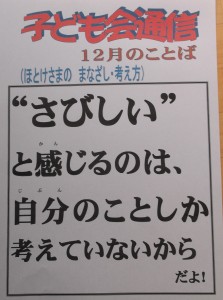 子ども会通信
12月のことば
(ほとけさまの まなざし・考え方)
“さびしい”
と感じるのは、
自分のことしか
考えていないから
だよ!